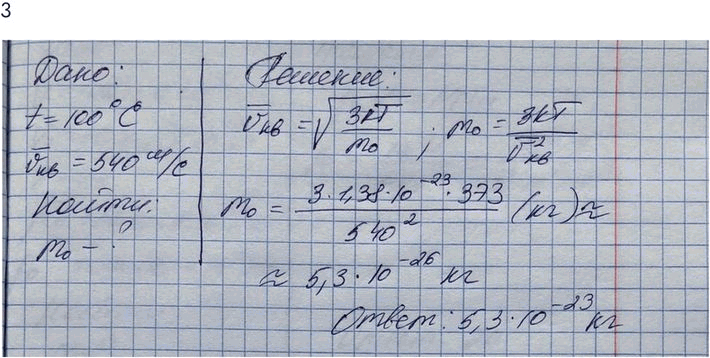 3
Дано:
t = 100°C
v̅кв = 540 м/с
Найти:
m₀ - ?
Решение:
v̅кв = √(3кТ/m₀) ; m₀ = 3кТ/v̅²кв
m₀ = 3·1,38·10⁻²³·373/540² (кг) ≈
≈ 5,3·10⁻²⁶ кг
Ответ: 5,3·10⁻²³ кг